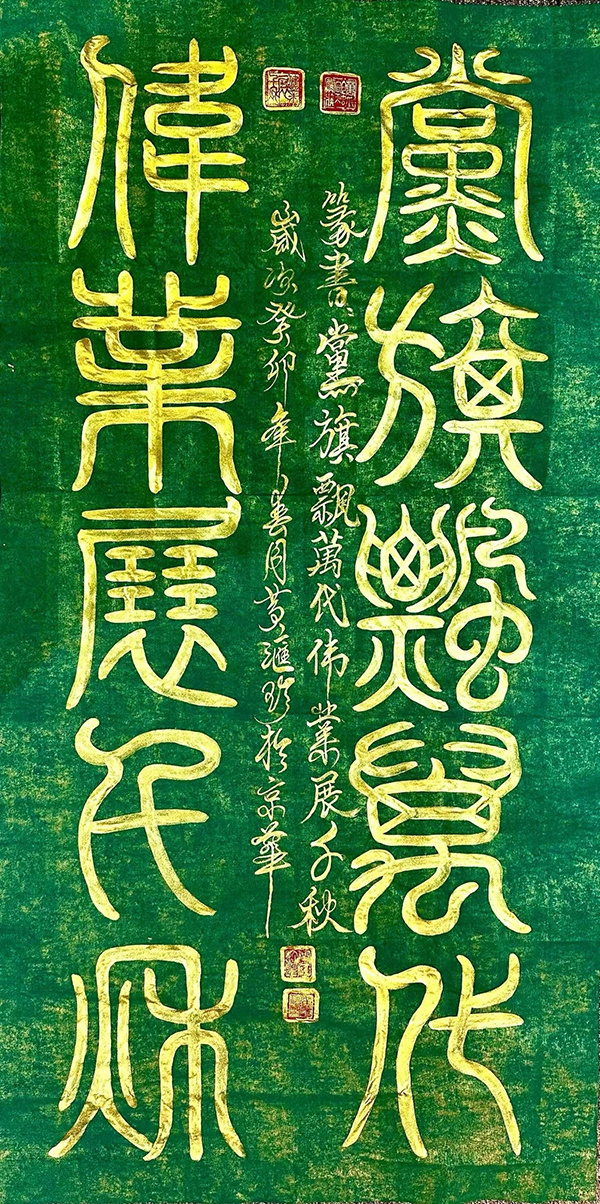 黨旗飄萬代
偉業展千秋
篆書黨旗飄萬代伟業展千秋
歲次癸卯年春月黃滙珍於京華